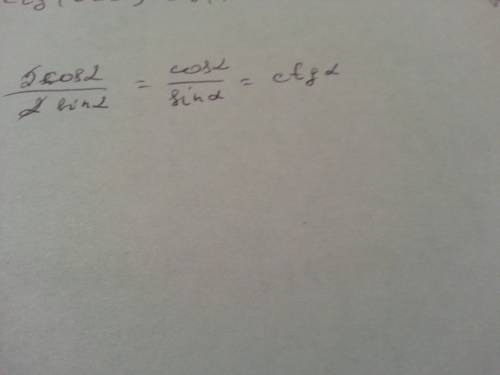 2cosα / 2 sinα = cosα / sinα = ctg α